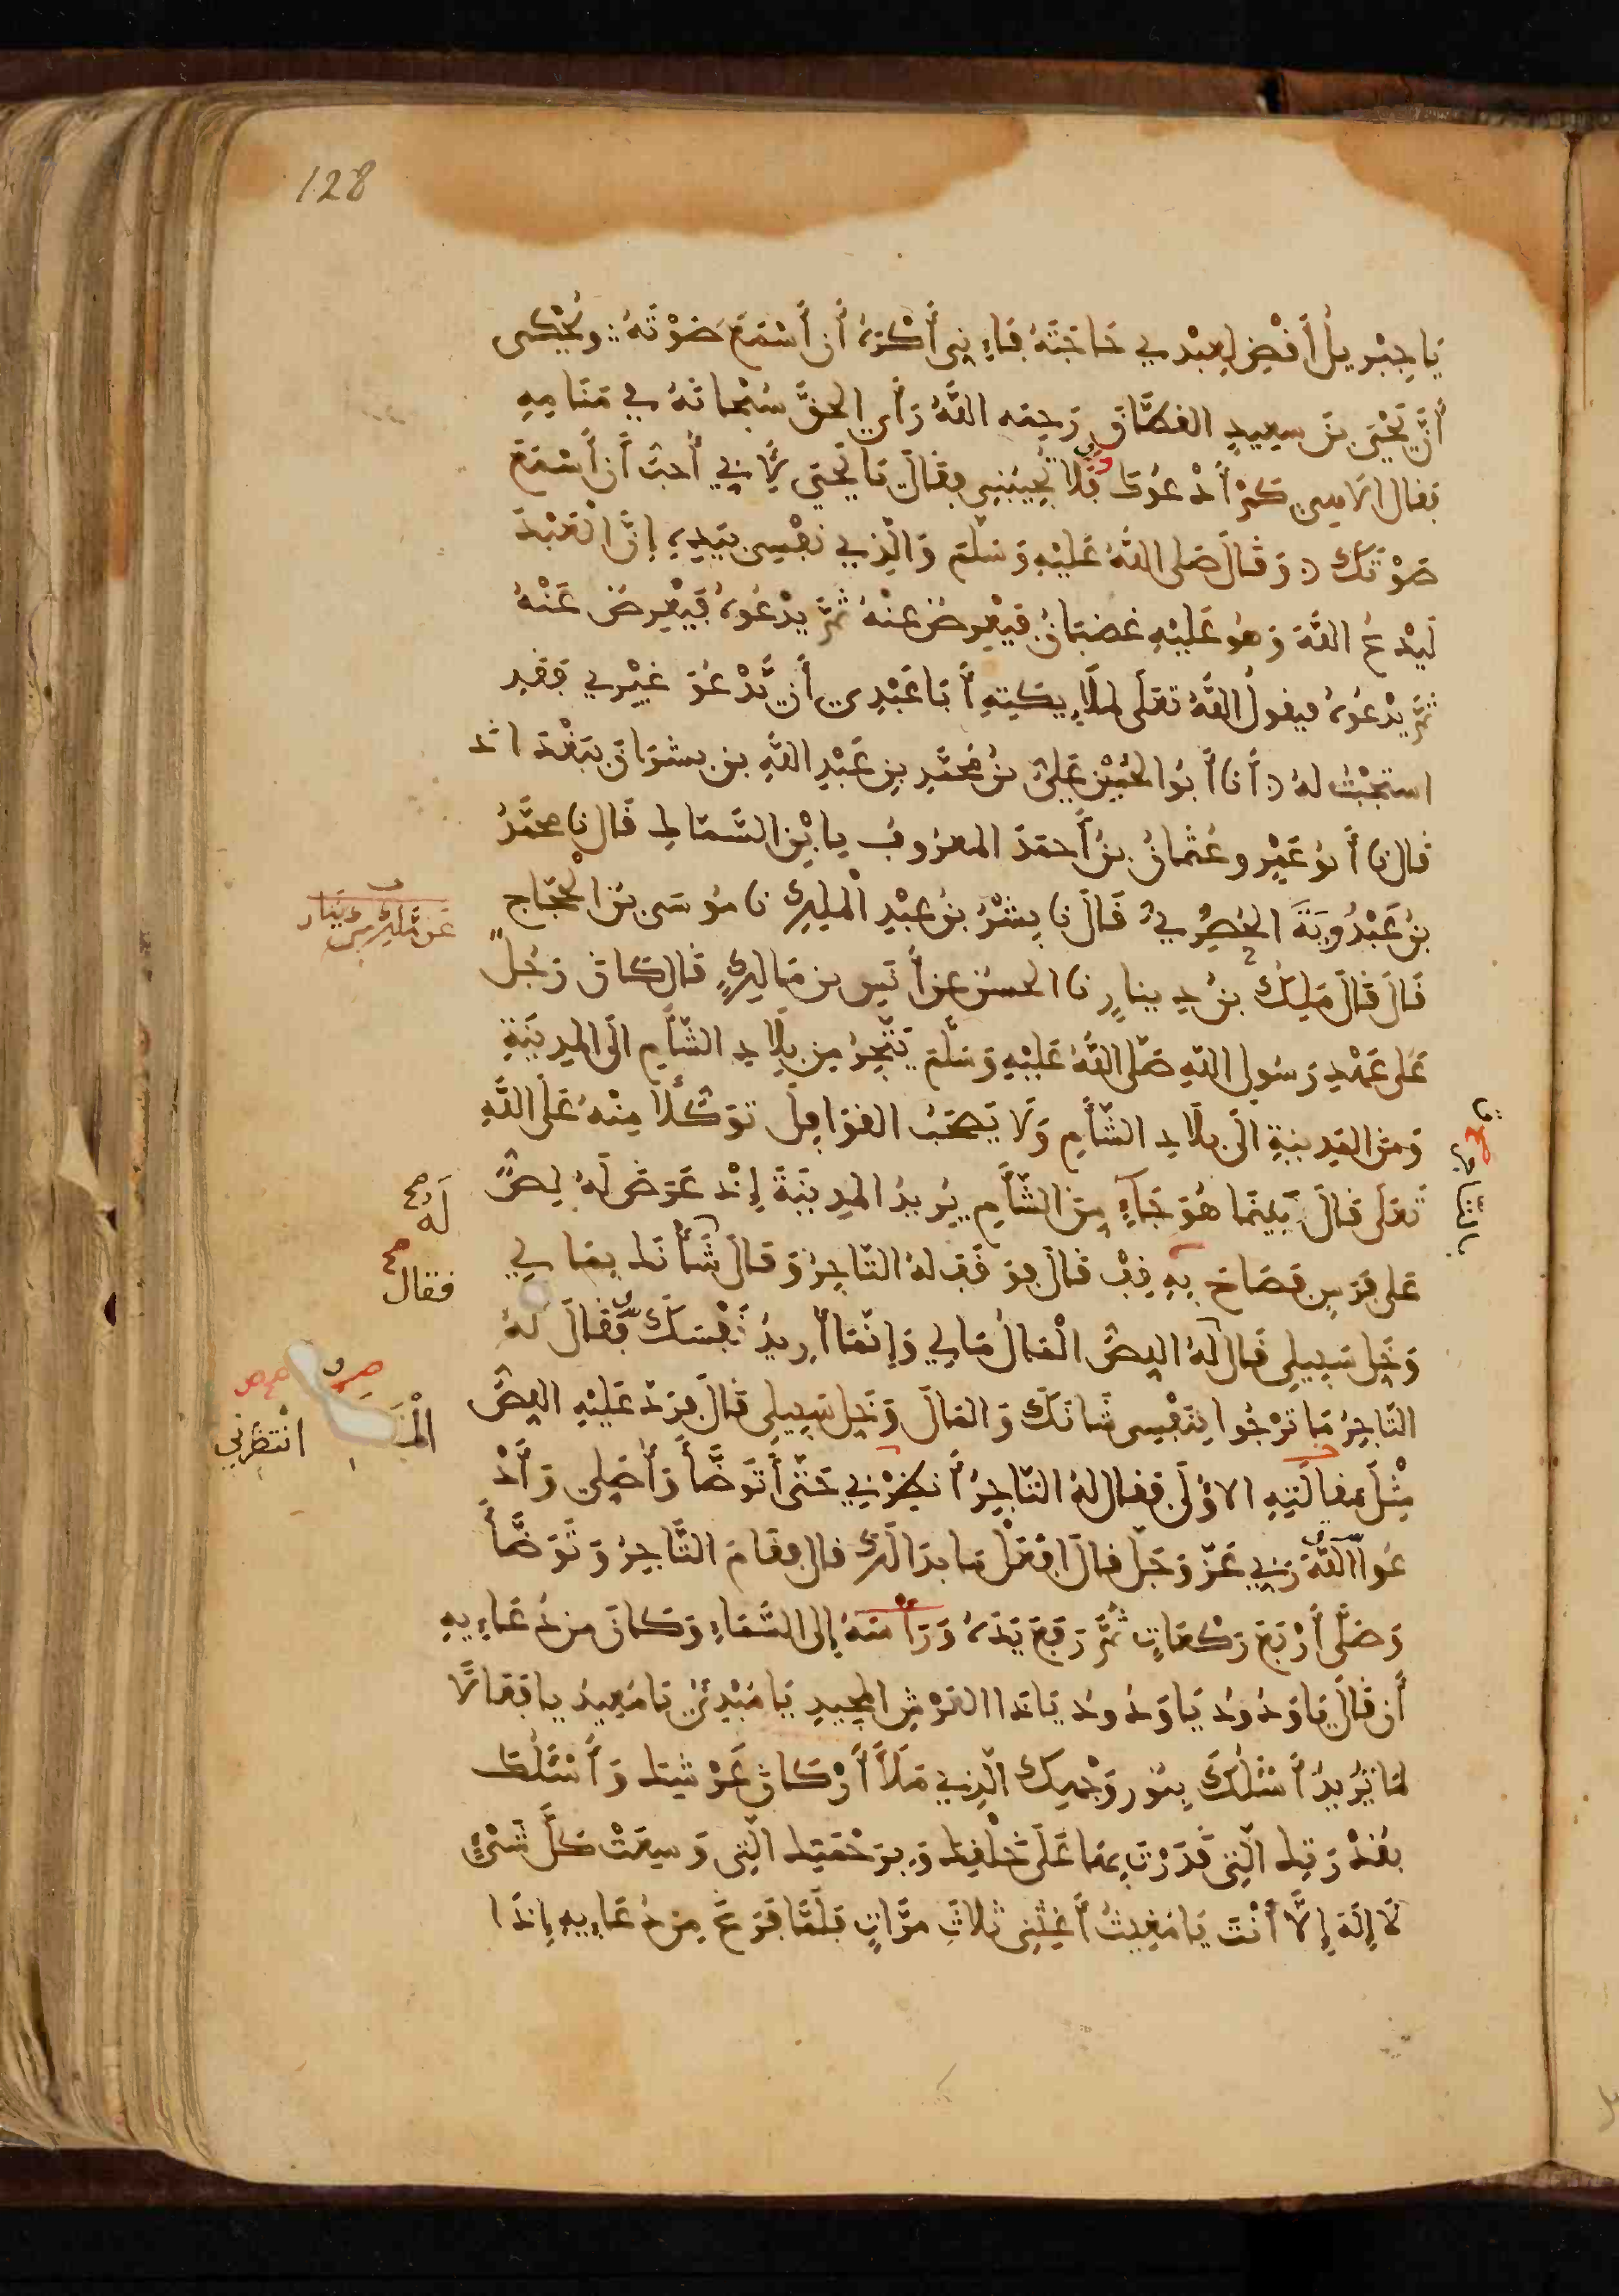 128
يَا جِبْرِيلُ اُقْضِ لِعَبْدِي حَاجَتَهُ فَإِنِّي أَكْرَهُ أَنْ أَسْمَعَ صَوْتَهُ ويُحْكى
أَنَّ يَحْيَى بْنَ سعيدٍ القطَّانَ رَحِمَه اللَّهُ رَأَى الحقَّ سُبْحانَهُ فِي مَنَامِهِ
فقال الاهي كَمْ أَدْعُوكَ فَلَا تُجِيبُنِي فقالَ يَا يَحْيَى لِأَنِّي أُحبُّ أَنْ أَسْمَعَ
صَوْتَكَ وَقَالَ صَلى اللَّهُ عَلَيْهِ وَسَلَّمَ وَالَّذِي نَفْسِي بِيَدِهِ إِنَّ الْعَبْدَ
لَيَدْعُ اللَّهَ وَهُوَ عَلَيْهِ غَضْبَانُ فَيُعْرِضُ عَنْهُ ثُمَّ يَدْعُوهُ فَيُعْرِضُ عَنْهُ
ثُمَّ يَدْعُوهُ فيقولُ اللَّهُ تَعَلَى لِمَلَايِكَتِهِ أَبَا عَبْدِي أَنْ يَّدْعُوَ غَيْرِي فَقَدِ
استجبْتُ لهُ أَنا أَبُو الحُسَيْنِ عَلِيُّ بْنُ مُحَمَّدِ بْنِ عَبْدِ اللَّهِ بْنِ بِشْرَانَ بِبَغْدَاد
قال نا أَبُو عَمْرٍو عُثمانُ بْنُ أَحمَدَ المعروفُ بابْنِ السَّمَاكِ قَالَ نا محمَّدُ
بْنُ عَبْدُويَةَ الحَضِرِيُّ قَالَ نا بِشْرُ بْنُ عَبْدِ الْمَلِكِ نا مُوسَى بْنُ الحَجَّاجِ
قَالَ قَالَ مَلِكُ بْنُ دِينارٍ نا الحسَنُ عَنْ أَنَسِ بْنِ مَالِكٍ قَالَ كَانَ رَجُلٌ
عَن مَّلِكِ بن دِينَار
عَلَى عَهْدِ رَسُولِ اللّهِ صَلَّى اللَّهُ عَلَيْهِ وَسَلَّمَ يَتَّجِرُ مِنْ بِلَادِ الشَّأْمِ الَى المدِينَةِ
وَمِنَ المَدِينَةِ الَى بلَادِ الشَّأْمِ وَلَا يَصْحَبُ القَوَافِلَ تَوَكُّلًا مِنْهُ عَلَى اللَّهِ
تَعَلَى قَالَ بَيْنَمَا هُوَ جَاءٍ مِنَ الشَّأْمِ يُرِيدُ المدِينَةَ إِذْ عَرَضَ لَهُ لِصٌّ
عَلى فَرَسٍ فَصَاحَ بِهِ قِفْ قَالَ فوَقَفَ لهُ التَّاجِرُ وَقَالَ شَأْنَكَ بِمَالِي
لَهُ صح
فقال صح
وَخَلِّ سَبِيلِي قَالَ لَهُ اللِّصُّ الْمَالُ مَالِي وَإِنَّمَا أُرِيدُ نَفْسَكَ فَقَالَ لَهُ
التَّاجِرُ مَا تَرْجُوا بِنَفْسِي شَانَكَ وَالمَالَ وَخَلِّ سَبِيلِي قَالَ فَرَدَّ عَلَيْهِ اللِّصُّ
مِثْلَ مَقَالَتِهِ الاوْلَى فَقَالَ لهُ التَّاجِرُ أَنظِرْنِي حَتَّى أَتَوَضَّأَ وَأُصَلِي وَأَدْ
انْتظرْنِي
عُوا اللَّهَ رَبِي عَزَّ وَجَلَّ قالَ افْعَلْ مَا بدَا لَكَ قال فقَامَ التَّاجِرُ وَتَوَضَّأَ
وَصَلَّى أَرْبَعَ رَكعَاتٍ ثُمَّ رَفَعَ يَدَهُ وَرَأْسَهُ إلى السَّمَاءِ وَكَانَ مِن دُعَايِهِ
أَن قَالَ يَا وَدُودُ يَا وَدُودُ يَا ذَا العَرْشِ المَجِيدِ يَا مُبْدِئُ يَا مُعِيدُ يا فَعَّالًا
لمَا يُرِيدُ أَسْئَلُكَ بِنُورِ وَجْهِكَ الَّذِي مَلَأَ أَرْكانَ عَرْشِكَ وَأَسْئَلُكَ
بِقُدْرَتِكَ الَّتِي قَدَرْتَ بِهَا عَلَى خَلْقِكَ وَبِرَحْمَتِكَ الَّتِي وَسِعَتْ كُلَّ شَيْءٍ
لَا إلَهَ إِلَّا أَنْتَ يَا مُغِيثُ أَغِثْنِي ثَلَاثَ مَرَّاتٍ فَلَمَّا فَرَغَ مِنْ دُعَايِهِ إِذَا